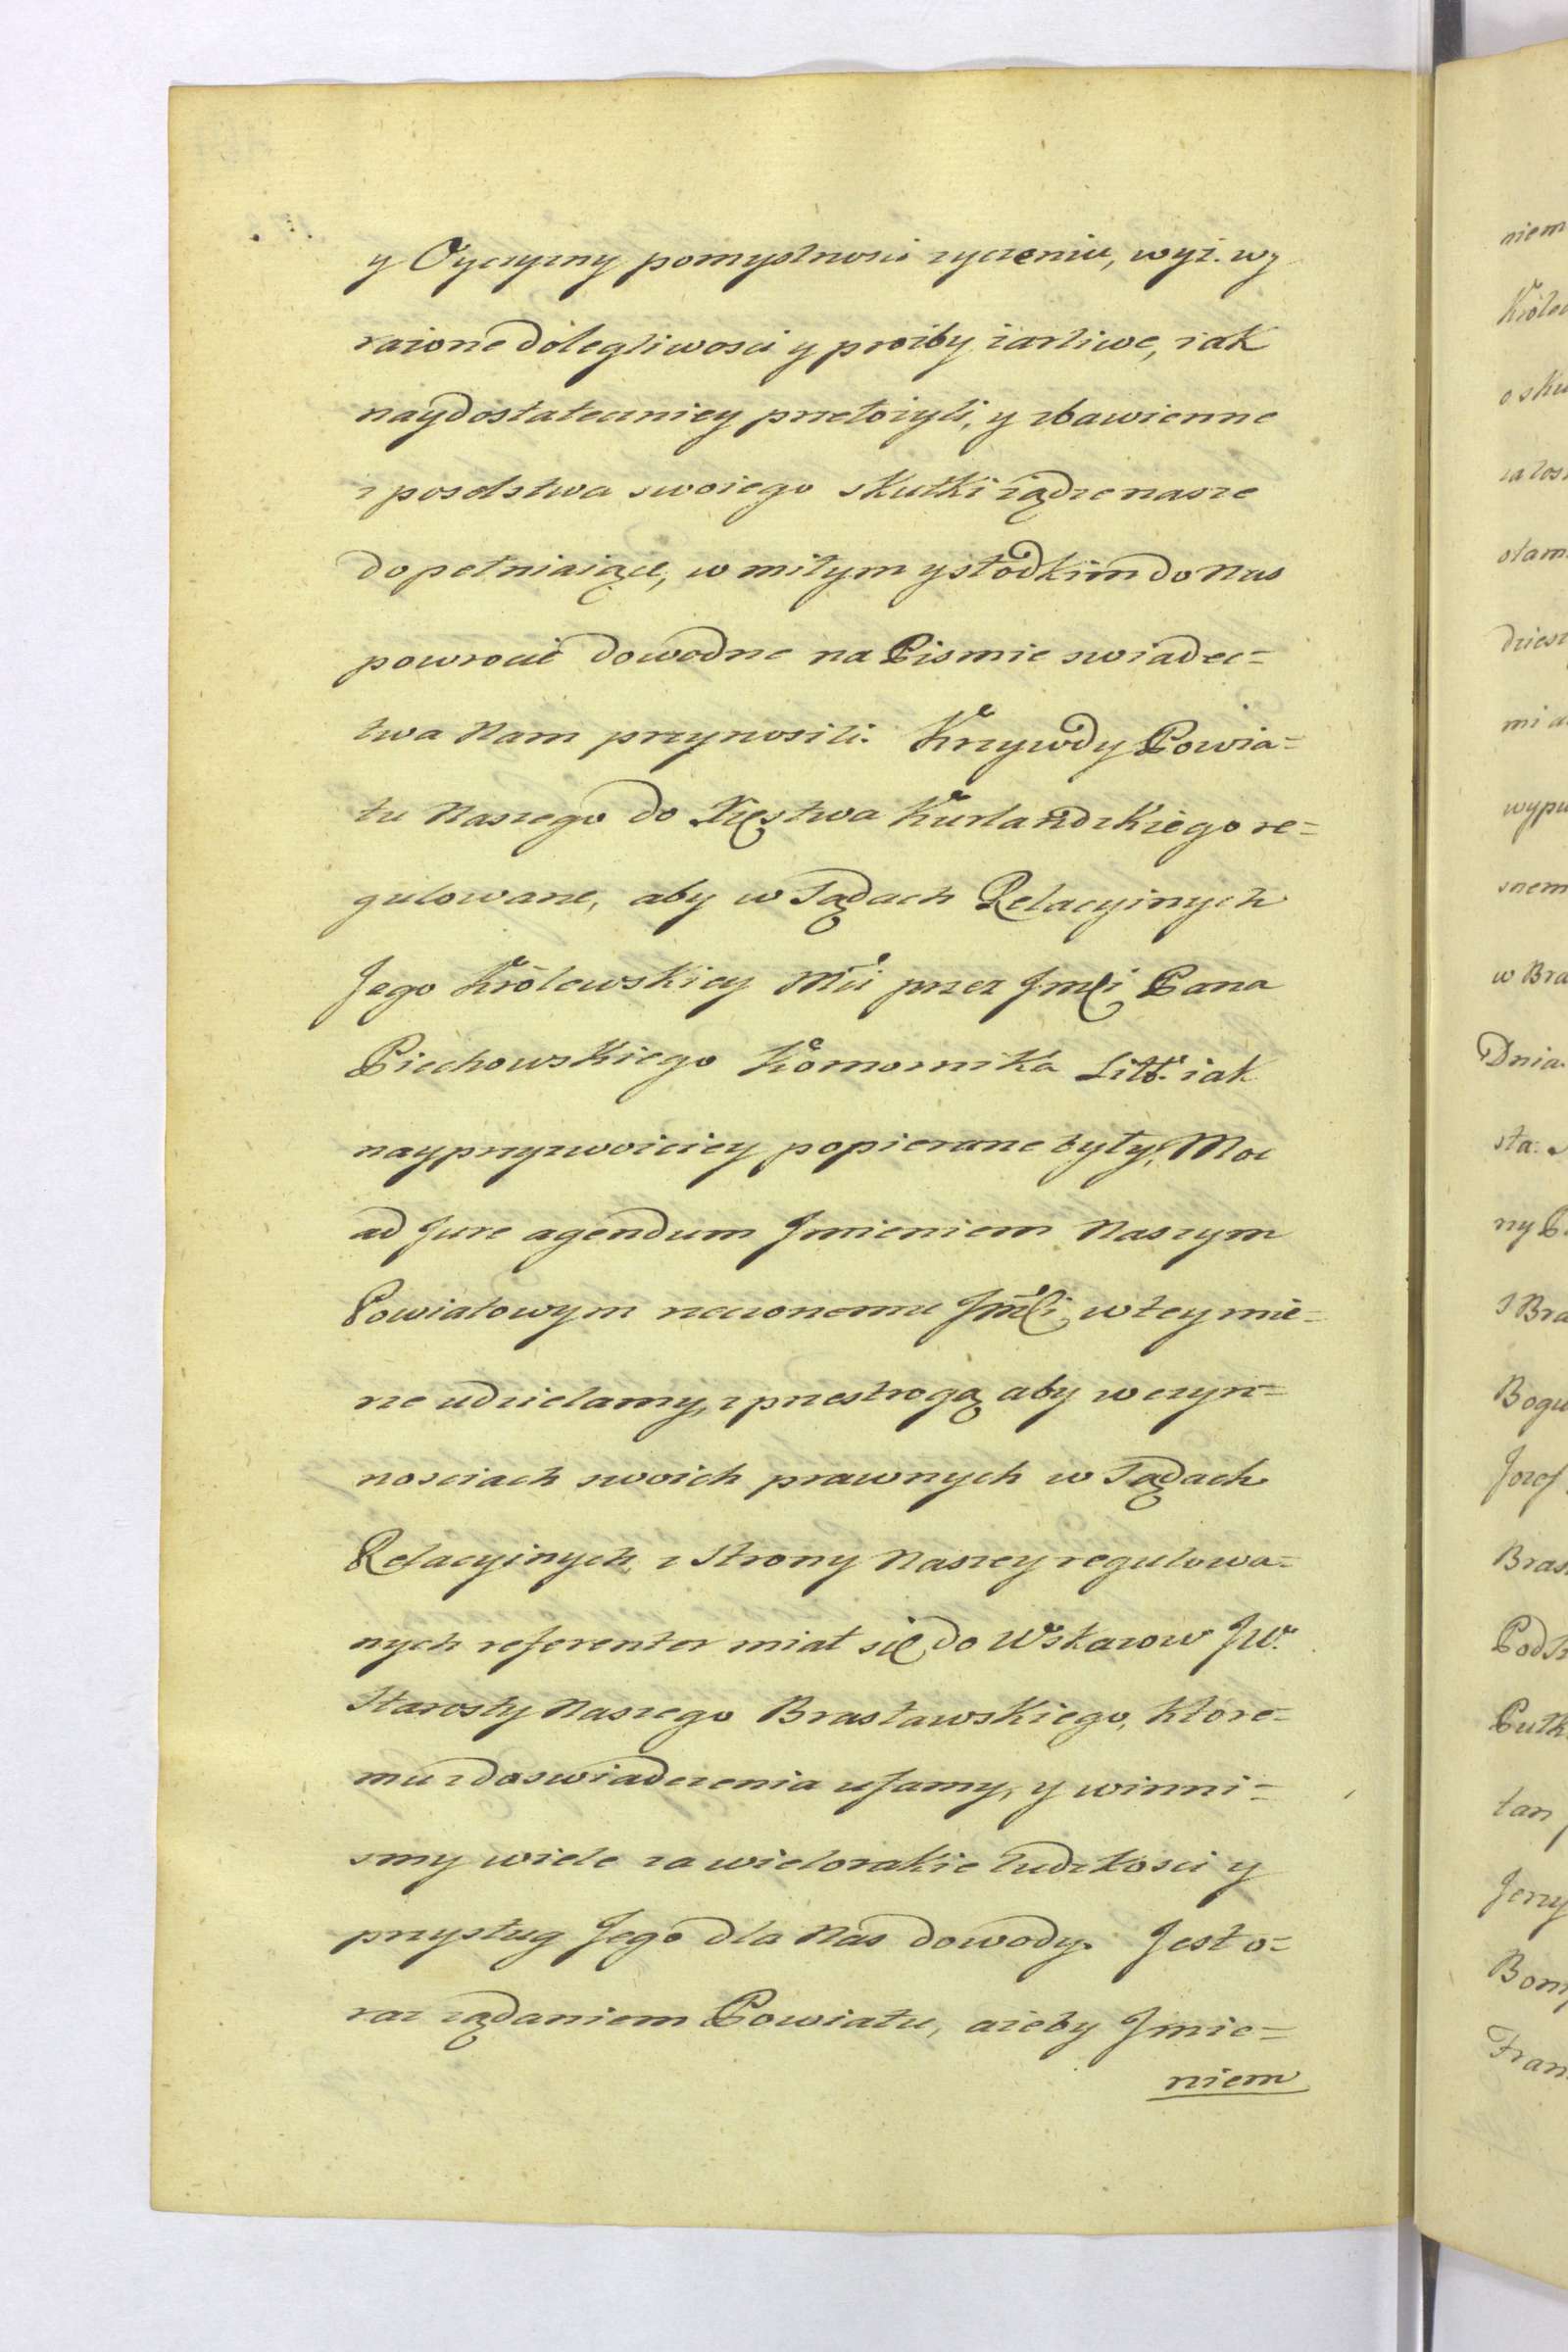 y Oyczyzny pomyslnosci zyczeniu, wyż. wy
rażone dolegliwosci y proźby żarliwe, iak
naydostateczniey przełożyli, y zbawienne
z poselstwa swoiego skutki żądze nasze
dopełniaiące, w miłym y słodkim do Nas
powrocie dowodne na Pismie swiadec=
twa Nam przynosili. Krzywdy Powia=
tu Naszego do Xięstwa Kurlandzkiego re=
gulowane, aby w Sądach Relacyinych
Jego Królewskiey Mći przez Jmći Pana
Piechowskiego Komornika Litt. iak
nayprzyzwoiciey popierane były, Moc
ad Jure agendum Jmieniem Naszym
Powiatowym rzeczonemu Jmći, w tey mie=
rze udzielamy, z przestrogą aby w czyn=
nosciach swoich prawnych w Sądach
Relacyinych, z Strony Naszey regulowa=
nych referenter miał się do Wskazow JW.
Starosty Naszego Brasławskiego, ktore=
mu z doswiadczenia ufamy, y winni=
smy wiele za wielorakie ludzkosci y
przysług Jego dla Nas dowody. Jest o=
raz żądaniem Powiatu, ażeby Jmie=
niem
niem
Królew
o sku
olam
mi
wypu
snem
w Bra
Dnia
sta:
ny P.
Bra
Bogu
Jozef
Bras
Pods
Putk
tan
Jerzy
Bom
Fran